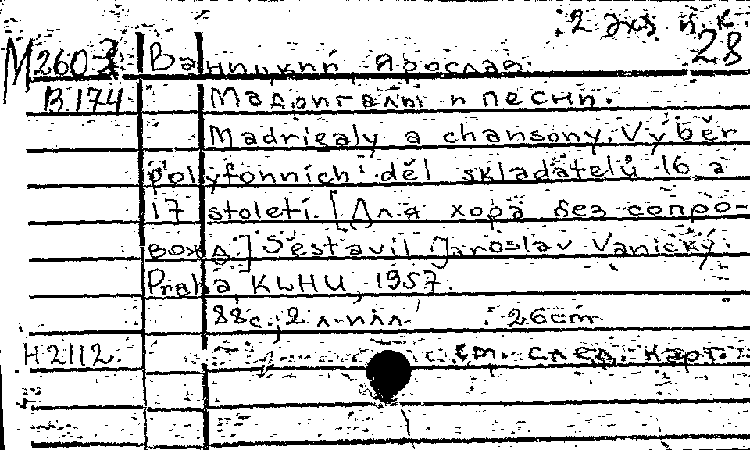 2 экз н.к.
28
М2603 Ваницкий, Ярослав.
В.174 Мадригалы и песни.
Madrigaly a chansony. Výběr
polyfonních děl skladatelů 16 a
17 století. [Для хора без сопро-
вожд.] Sestavil Jaroslav Vanický.
Praha, KLHU, 1957.
88с.; 2 л. илл. 26cm
Н2112. см. след. карт.